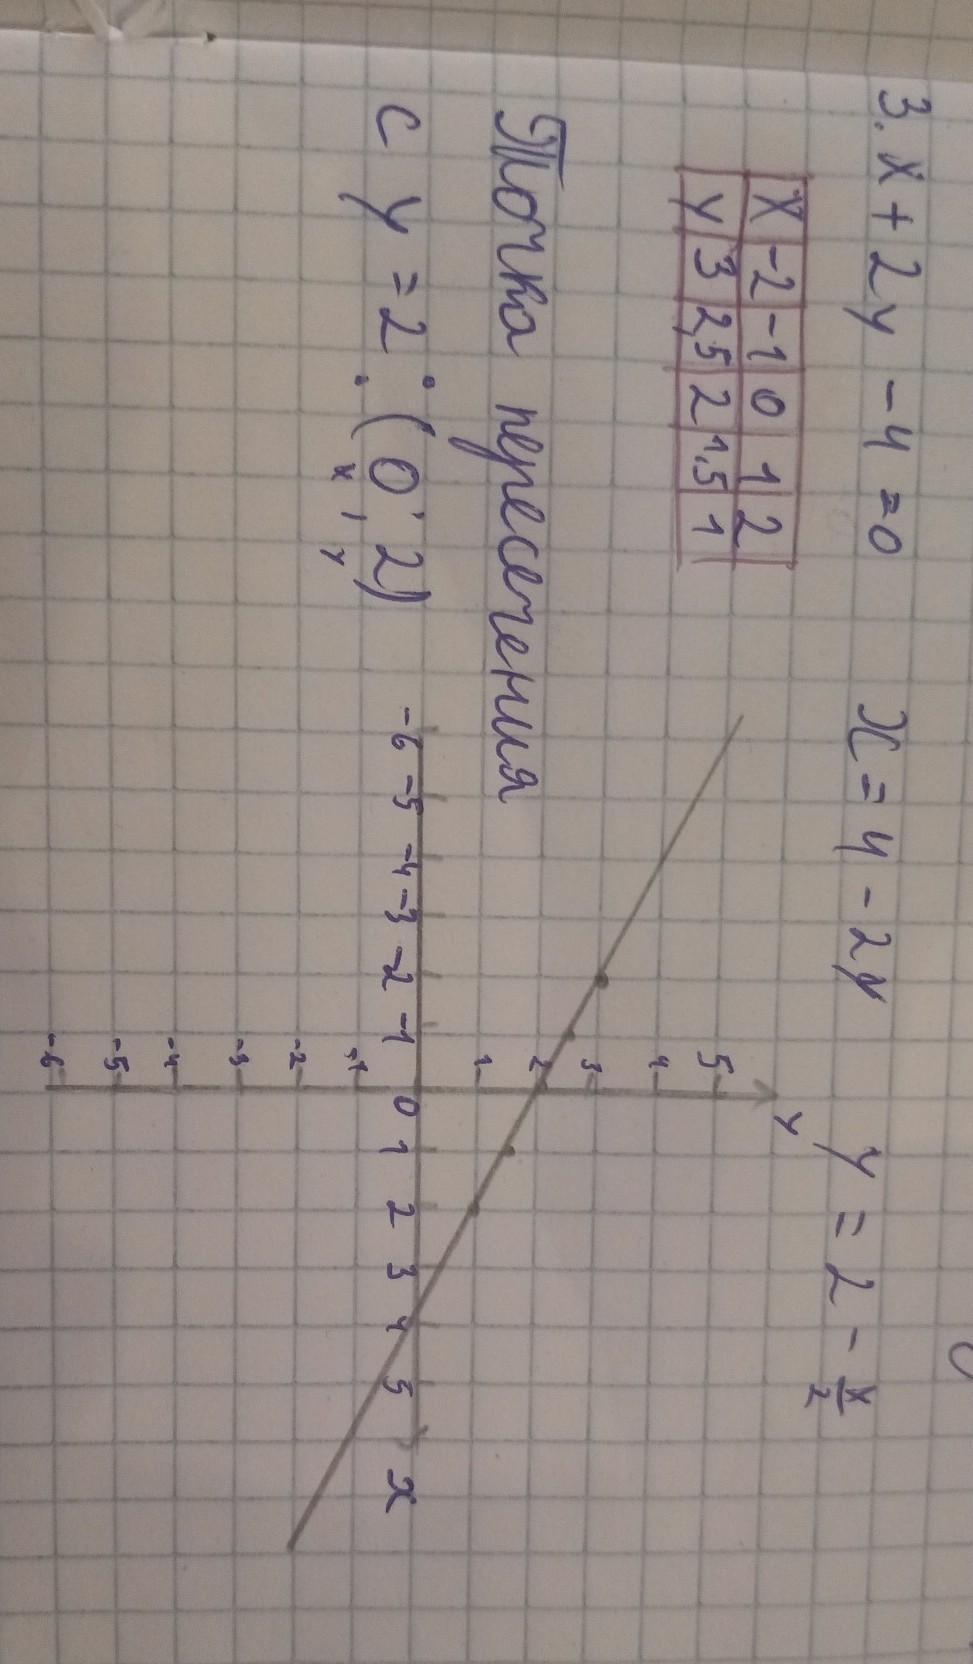 3. x + 2y - 4 = 0 x = 4 - 2y y = 2 - x/2
x -2 -1 0 1 2
y 3 2,5 2 1,5 1
Точка пересечения
с y = 2 : (0; 2)
x , y
y
5
4
3
2
1
-6 -5 -4 -3 -2 -1 0 1 2 3 4 5 x
-1
-2
-3
-4
-5
-6